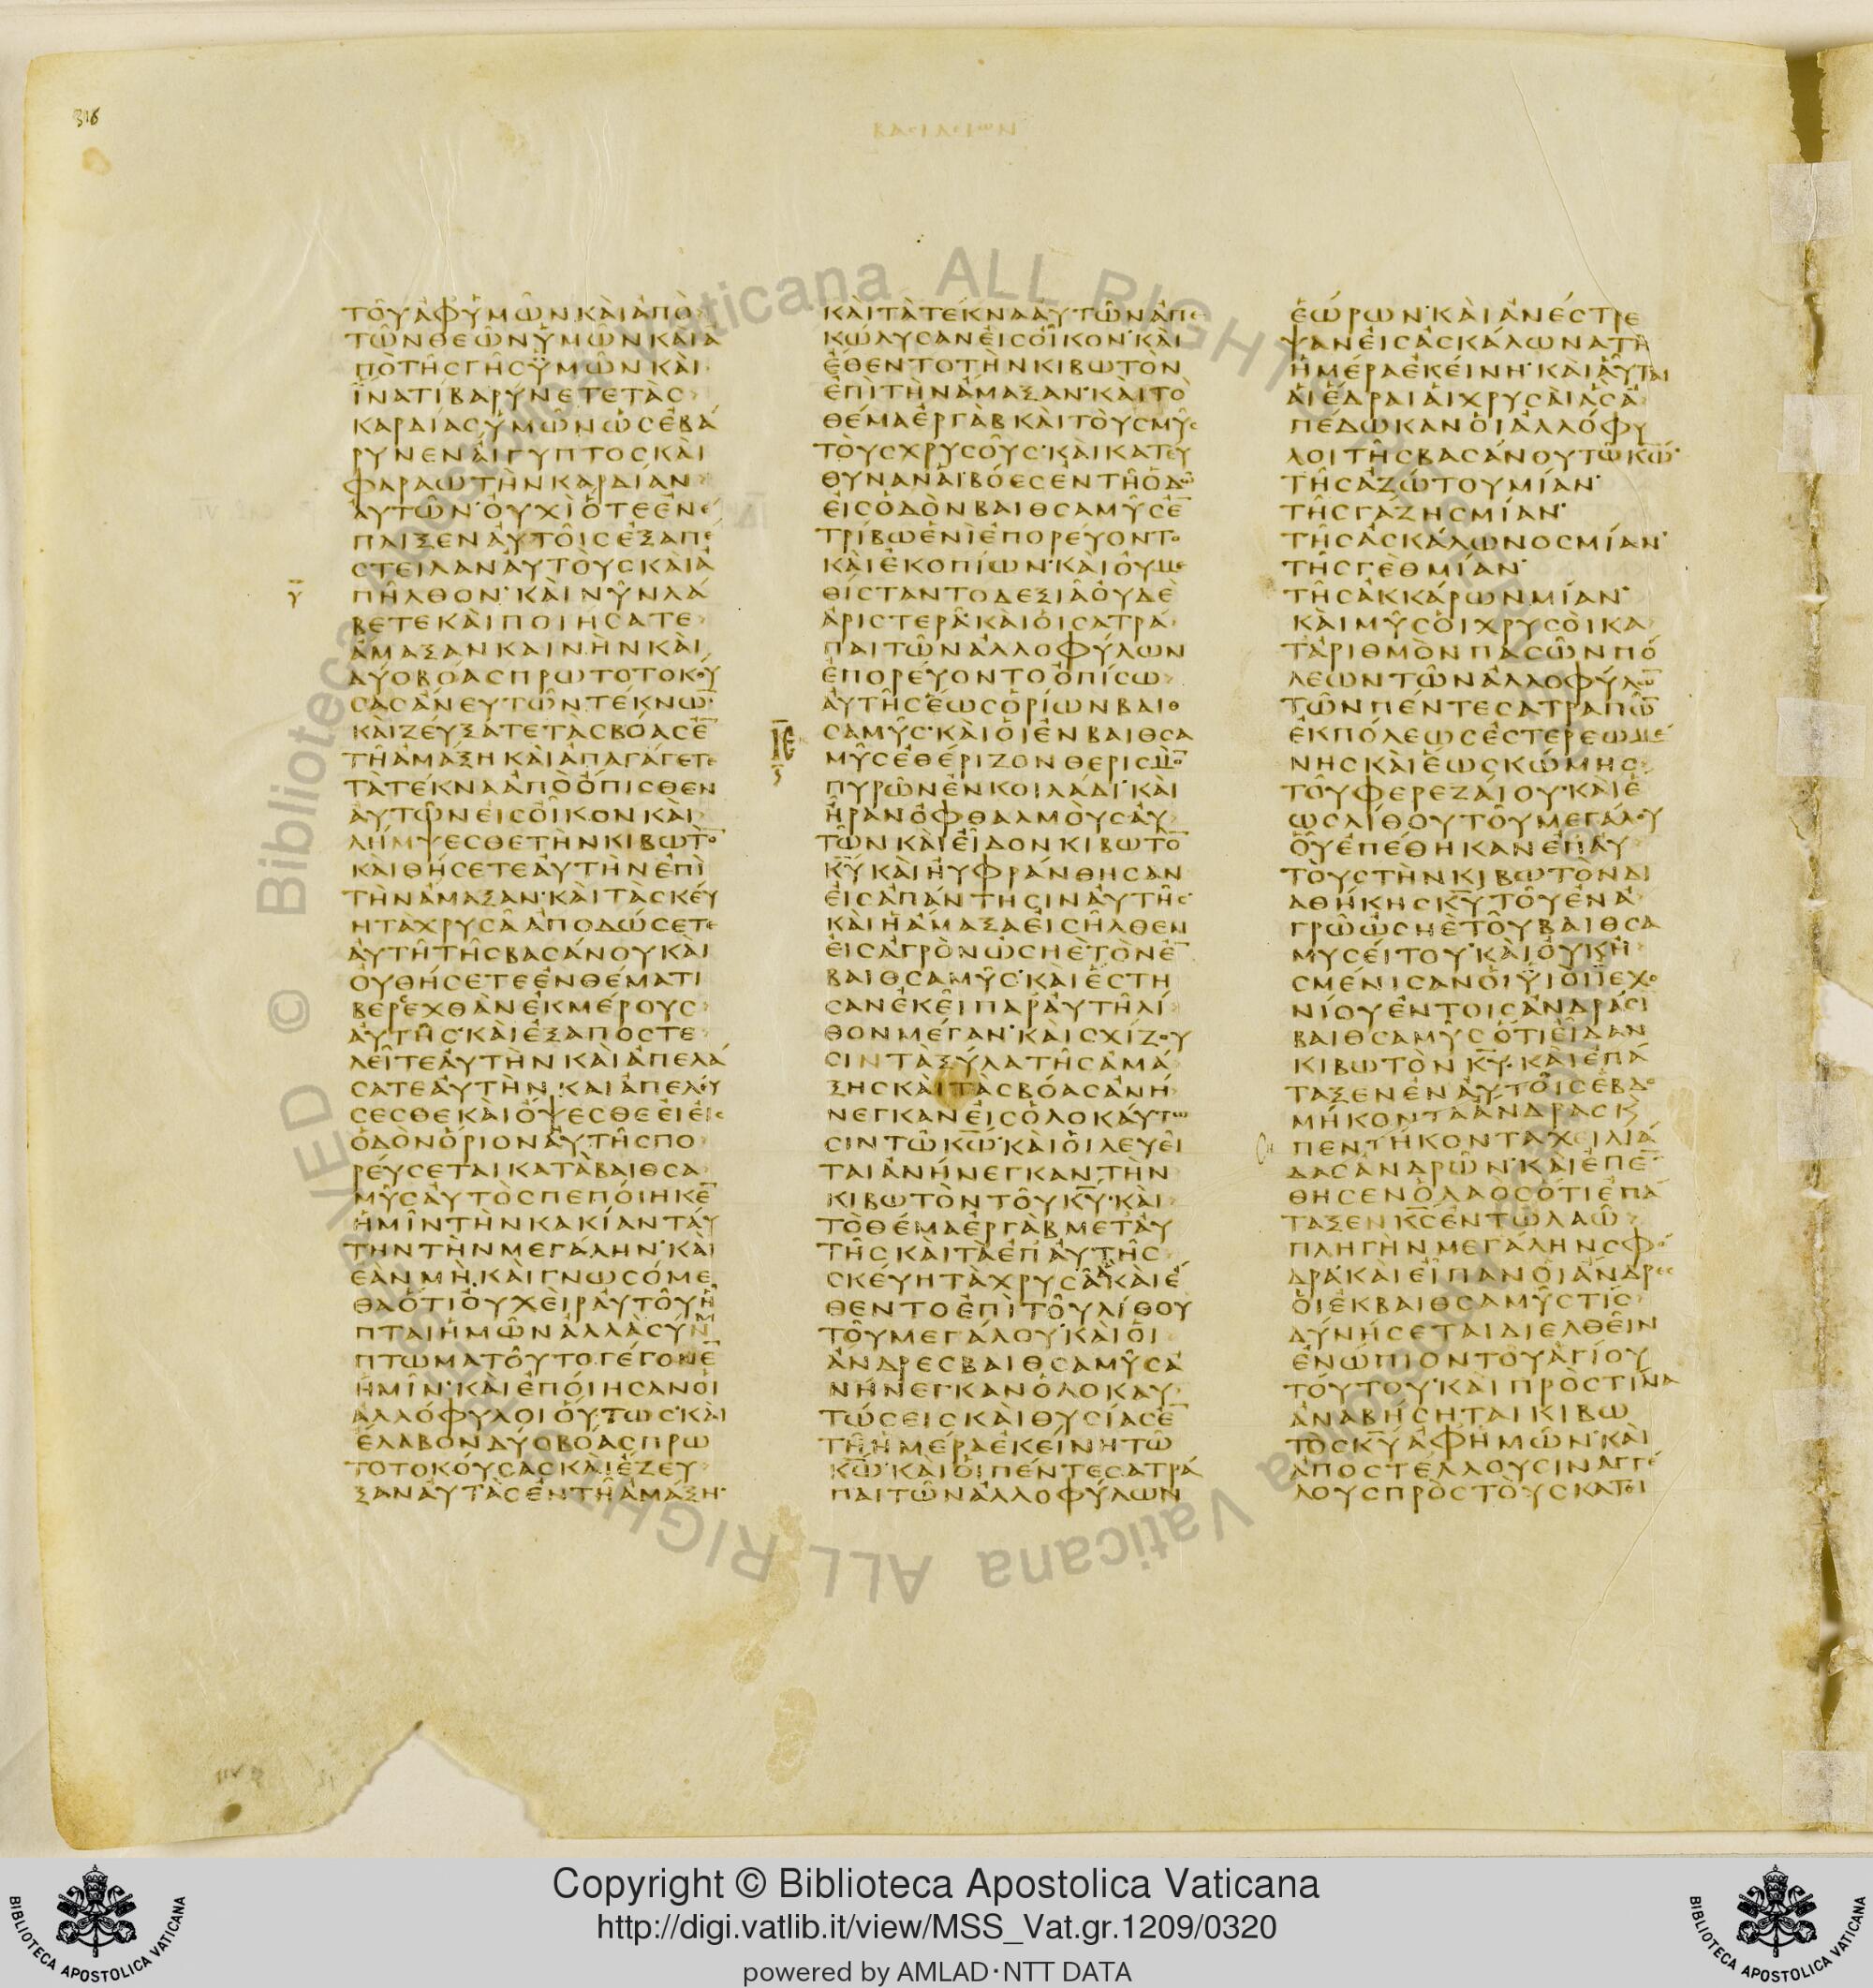 316
ΒΑΣΙΛΕΙΩΝ
ΤΟΥΑΦΥΜΩΝΚΑΙΑΠΟ
ΤΩΝΘΕΩΝΥΜΩΝΚΑΙΑ
ΠΟΤΗΣΓΗΣΥΜΩΝΚΑΙ
ΙΝΑΤΙΒΑΡΥΝΕΤΕΤΑΣ
ΚΑΡΔΙΑΣΥΜΩΝΩΣΕΒΑ
ΡΥΝΕΝΑΙΓΥΠΤΟΣΚΑΙ
ΦΑΡΑΩΤΗΝΚΑΡΔΙΑΝ
ΑΥΤΩΝ·ΟΥΧΙΟΤΕΕΝΕ
ΠΑΙΞΕΝΑΥΤΟΙΣΕΞΑΠΕ
ΣΤΕΙΛΑΝΑΥΤΟΥΣΚΑΙΑ
Γ̅ ΠΗΛΘΟΝ·ΚΑΙΝΥΝΛΑ
ΒΕΤΕΚΑΙΠΟΙΗΣΑΤΕ
ΑΜΑΞΑΝΚΑΙΝΗΝΚΑΙ
ΔΥΟΒΟΑΣΠΡΩΤΟΤΟΚΟΥ
ΣΑΣΑΝΕΥΤΩΝΤΕΚΝΩ̅
ΚΑΙΖΕΥΞΑΤΕΤΑΣΒΟΑΣΕ̅
ΤΗΑΜΑΞΗΚΑΙΑΠΑΓΑΓΕΤΕ
ΤΑΤΕΚΝΑΑΠΟΟΠΙΣΘΕΝ
ΑΥΤΩΝΕΙΣΟΙΚΟΝΚΑΙ
ΛΗΜΨΕΣΘΕΤΗΝΚΙΒΩΤΟ̅
ΚΑΙΘΗΣΕΤΕΑΥΤΗΝΕΠΙ
ΤΗΝΑΜΑΞΑΝ·ΚΑΙΤΑΣΚΕΥ
ΗΤΑΧΡΥΣΑΑΠΟΔΩΣΕΤΕ
ΑΥΤΗΤΗΣΒΑΣΑΝΟΥΚΑΙ
ΟΥΘΗΣΕΤΕΕΝΘΕΜΑΤΙ
ΒΕΡΕΧΘΑΝΕΚΜΕΡΟΥΣ
ΑΥΤΗΣ·ΚΑΙΕΞΑΠΟΣΤΕ
ΛΕΙΤΕΑΥΤΗΝΚΑΙΑΠΕΛΑ
ΣΑΤΕΑΥΤΗΝ·ΚΑΙΑΠΕΛΕΥ
ΣΕΣΘΕΚΑΙΟΨΕΣΘΕΕΙΕΙΣ
ΟΔΟΝΟΡΙΟΝΑΥΤΗΣΠΟ
ΡΕΥΣΕΤΑΙΚΑΤΑΒΑΙΘΣΑ
ΜΥΣΑΥΤΟΣΠΕΠΟΙΗΚΕ̅
ΗΜΙΝΤΗΝΚΑΚΙΑΝΤΑΥ
ΤΗΝΤΗΝΜΕΓΑΛΗΝ·ΚΑΙ
ΕΑΝΜΗ·ΚΑΙΓΝΩΣΟΜΕ
ΘΑΟΤΙΟΥΧΕΙΡΑΥΤΟΥΗ
ΠΤΑΙΗΜΩΝΑΛΛΑΣΥΝ
ΠΤΩΜΑΤΟΥΤΟΓΕΓΟΝΕ̅
ΗΜΙΝ·ΚΑΙΕΠΟΙΗΣΑΝΟΙ
ΑΛΛΟΦΥΛΟΙΟΥΤΩΣ·ΚΑΙ
ΕΛΑΒΟΝΔΥΟΒΟΑΣΠΡΩ
ΤΟΤΟΚΟΥΣΑΣΚΑΙΕΖΕΥ
ΞΑΝΑΥΤΑΣΕΝΤΗΑΜΑΞΗ·
ΚΑΙΤΑΤΕΚΝΑΑΥΤΩΝΑΠΕ
ΚΩΛΥΣΑΝΕΙΣΟΙΚΟΝ·ΚΑΙ
ΕΘΕΝΤΟΤΗΝΚΙΒΩΤΟΝ
ΕΠΙΤΗΝΑΜΑΞΑΝ·ΚΑΙΤΟ
ΘΕΜΑΕΡΓΑΒΚΑΙΤΟΥΣΜΥΣ
ΤΟΥΣΧΡΥΣΟΥΣ·ΚΑΙΚΑΤΕΥ
ΘΥΝΑΝΑΙΒΟΕΣΕΝΤΗΟΔΩ
ΕΙΣΟΔΟΝΒΑΙΘΣΑΜΥΣΕ̅
ΤΡΙΒΩΕΝΙΕΠΟΡΕΥΟΝΤΟ
ΚΑΙΕΚΟΠΙΩΝ·ΚΑΙΟΥΜΕ
ΘΙΣΤΑΝΤΟΔΕΞΙΑΟΥΔΕ
ΑΡΙΣΤΕΡΑ·ΚΑΙΟΙΣΑΤΡΑ
ΠΑΙΤΩΝΑΛΛΟΦΥΛΩΝ
ΕΠΟΡΕΥΟΝΤΟΟΠΙΣΩ
ΑΥΤΗΣΕΩΣΟΡΙΩΝΒΑΙΘ
Ι̅Ε̅ ΣΑΜΥΣ·ΚΑΙΟΙΕΝΒΑΙΘΣΑ
ΜΥΣΕΘΕΡΙΖΟΝΘΕΡΙΣΜΟ̅
ΠΥΡΩΝΕΝΚΟΙΛΑΔΙ·ΚΑΙ
ΗΡΑΝΟΦΘΑΛΜΟΥΣΑΥ
ΤΩΝΚΑΙΕΙΔΟΝΚΙΒΩΤΟ̅
Κ̅Υ̅ΚΑΙΗΥΦΡΑΝΘΗΣΑΝ
ΕΙΣΑΠΑΝΤΗΣΙΝΑΥΤΗΣ
ΚΑΙΗΑΜΑΞΑΕΙΣΗΛΘΕΝ
ΕΙΣΑΓΡΟΝΩΣΗΕΤΟΝΕ̅
ΒΑΙΘΣΑΜΥΣ·ΚΑΙΕΣΤΗ
ΣΑΝΕΚΕΙΠΑΡΑΥΤΗΛΙ
ΘΟΝΜΕΓΑΝ·ΚΑΙΣΧΙΖΟΥ
ΣΙΝΤΑΞΥΛΑΤΗΣΑΜΑ
ΞΗΣΚΑΙΤΑΣΒΟΑΣΑΝΗ
ΝΕΓΚΑΝΕΙΣΟΛΟΚΑΥΤΩ
ΣΙΝΤΩΚ̅Ω̅·ΚΑΙΟΙΛΕΥΕΙ
ΤΑΙΑΝΗΝΕΓΚΑΝΤΗΝ
ΚΙΒΩΤΟΝΤΟΥΚ̅Υ̅·ΚΑΙ
ΤΟΘΕΜΑΕΡΓΑΒΜΕΤΑΥ
ΤΗΣΚΑΙΤΑΕΠΑΥΤΗΣ
ΣΚΕΥΗΤΑΧΡΥΣΑΚΑΙΕ
ΘΕΝΤΟΕΠΙΤΟΥΛΙΘΟΥ
ΤΟΥΜΕΓΑΛΟΥ·ΚΑΙΟΙ
ΑΝΔΡΕΣΒΑΙΘΣΑΜΥΣΑ
ΝΗΝΕΓΚΑΝΟΛΟΚΑΥ
ΤΩΣΕΙΣΚΑΙΘΥΣΙΑΣΕ̅
ΤΗΗΜΕΡΑΕΚΕΙΝΗΤΩ
Κ̅Ω̅·ΚΑΙΟΙΠΕΝΤΕΣΑΤΡΑ
ΠΑΙΤΩΝΑΛΛΟΦΥΛΩΝ
ΕΩΡΩΝ·ΚΑΙΑΝΕΣΤΡΕ
ΨΑΝΕΙΣΑΣΚΑΛΩΝΑΤΗ
ΗΜΕΡΑΕΚΕΙΝΗ·ΚΑΙΑΥΤΑΙ
ΑΙΕΔΡΑΙΑΙΧΡΥΣΑΙΑΣΑ
ΠΕΔΩΚΑΝΟΙΑΛΛΟΦΥ
ΛΟΙΤΗΣΒΑΣΑΝΟΥΤΩΚ̅Ω̅·
ΤΗΣΑΖΩΤΟΥΜΙΑΝ·
ΤΗΣΓΑΖΗΣΜΙΑΝ·
ΤΗΣΑΣΚΑΛΩΝΟΣΜΙΑΝ·
ΤΗΣΓΕΘΜΙΑΝ·
ΤΗΣΑΚΚΑΡΩΝΜΙΑΝ·
ΚΑΙΜΥΣΟΙΧΡΥΣΟΙΚΑ
ΤΑΡΙΘΜΟΝΠΑΣΩΝΠΟ
ΛΕΩΝΤΩΝΑΛΛΟΦΥΛΩ̅
ΤΩΝΠΕΝΤΕΣΑΤΡΑΠΩ̅
ΕΚΠΟΛΕΩΣΕΣΤΕΡΕΩΜΕ
ΝΗΣΚΑΙΕΩΣΚΩΜΗΣ
ΤΟΥΦΕΡΕΖΑΙΟΥ·ΚΑΙΕ
ΩΣΛΙΘΟΥΤΟΥΜΕΓΑΛΟΥ
ΟΥΕΠΕΘΗΚΑΝΕΠΑΥ
ΤΟΥΣΤΗΝΚΙΒΩΤΟΝΔΙ
ΑΘΗΚΗΣΚ̅Υ̅ΤΟΥΕΝΑ
ΓΡΩΩΣΗΕΤΟΥΒΑΙΘΣΑ
ΜΥΣΕΙΤΟΥ·ΚΑΙΟΥΚΗ
ΣΜΕΝΙΣΑΝΟΙΥΙΟΙΙΕΧΟ
ΝΙΟΥΕΝΤΟΙΣΑΝΔΡΑΣΙ
ΒΑΙΘΣΑΜΥΣΟΤΙΕΙΔΑΝ
ΚΙΒΩΤΟΝΚ̅Υ̅·ΚΑΙΕΠΑ
ΤΑΞΕΝΕΝΑΥΤΟΙΣΕΒΔΟ
ΜΗΚΟΝΤΑΑΝΔΡΑΣΚ
ΠΕΝΤΗΚΟΝΤΑΧΕΙΛΙΑ
ΔΑΣΑΝΔΡΩΝ·ΚΑΙΕΠΕ̅
ΘΗΣΕΝΟΛΑΟΣΟΤΙΕΠΑ
ΤΑΞΕΝΚ̅Σ̅ΕΝΤΩΛΑΩ
ΠΛΗΓΗΝΜΕΓΑΛΗΝΣΦΟ
ΔΡΑ·ΚΑΙΕΙΠΑΝΟΙΑΝΔΡΕΣ
ΟΙΕΚΒΑΙΘΣΑΜΥΣΤΙΣ
ΔΥΝΗΣΕΤΑΙΔΙΕΛΘΕΙΝ
ΕΝΩΠΙΟΝΤΟΥΑΓΙΟΥ
ΤΟΥΤΟΥ·ΚΑΙΠΡΟΣΤΙΝΑ
ΑΝΑΒΗΣΗΤΑΙΚΙΒΩ
ΤΟΣΚ̅Υ̅ΑΦΗΜΩΝ·ΚΑΙ
ΑΠΟΣΤΕΛΛΟΥΣΙΝΑΓΓΕ
ΛΟΥΣΠΡΟΣΤΟΥΣΚΑΤΟΙ
© Biblioteca Apostolica Vaticana ALL RIGHTS RESERVED
Copyright © Biblioteca Apostolica Vaticana
http://digi.vatlib.it/view/MSS_Vat.gr.1209/0320
powered by AMLAD·NTT DATA
BIBLIOTECA APOSTOLICA VATICANA
BIBLIOTECA APOSTOLICA VATICANA